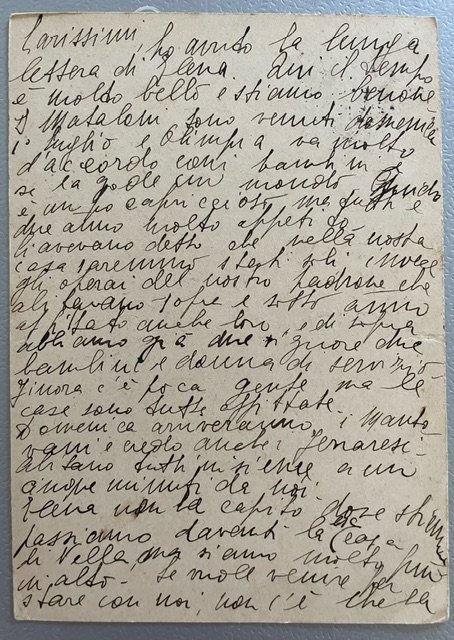 Carissimi, ho avuto la lunga
lettera di Lena. Qui il tempo
è molto bello e stiamo benone.
I Mataloni sono venuti domenica
1° luglio e Olimpia va molto
d'accordo con i bambini
se la gode un mondo. Guido
è un po capriccioso, ma tutti e
due anno molto appetito
Ci avevano detto che nella nostra
casa saremmo stati soli invece
gli operai del nostro padrone che
abitavano sopra e sotto anno
affittato anche loro, e di sopra
abbiamo già due signore due
bambini e donna di servizio
Finora c'è poca gente ma le
case sono tutte affittate.
Domenica arriveranno i Manto
vani e credo anche i
abitano tutti insieme a un
cinque minuti da noi.
Lena non la capito dove stiamo
passiamo davanti la casa
di Nella, ma siamo molto più
in alto. Se vuole venire per
stare con noi, non c'è che la